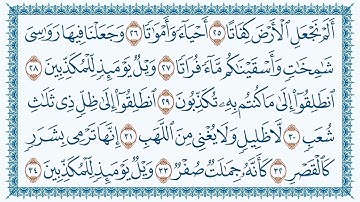 أَلَمْ نَجْعَلِ الْأَرْضَ كِفَاتًا ٢٥ أَحْيَاءً وَأَمْوَاتًا ٢٦ وَجَعَلْنَا فِيهَا رَوَاسِيَ
شَامِخَاتٍ وَأَسْقَيْنَاكُم مَّاءً فُرَاتًا ٢٧ وَيْلٌ يَوْمَئِذٍ لِّلْمُكَذِّبِينَ ٢٨
انطَلِقُوا إِلَىٰ مَا كُنتُم بِهِ تُكَذِّبُونَ ٢٩ انطَلِقُوا إِلَىٰ ظِلٍّ ذِي ثَلَاثِ
شُعَبٍ ٣٠ لَّا ظَلِيلٍ وَلَا يُغْنِي مِنَ اللَّهَبِ ٣١ إِنَّهَا تَرْمِي بِشَرَرٍ
كَالْقَصْرِ ٣٢ كَأَنَّهُ جِمَالَتٌ صُفْرٌ ٣٣ وَيْلٌ يَوْمَئِذٍ لِّلْمُكَذِّبِينَ ٣٤